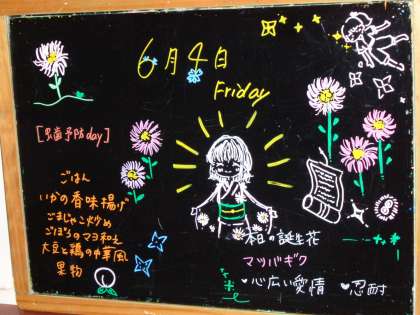 6月4日
Friday
[虫歯予防day]
ごはん
いかの香味揚げ
ごまじゃこ炒め
ごぼうのマヨ和え
大豆と鶏の中華風
果物
本日の誕生花
マツバギク
心広い愛情 ♥忍耐